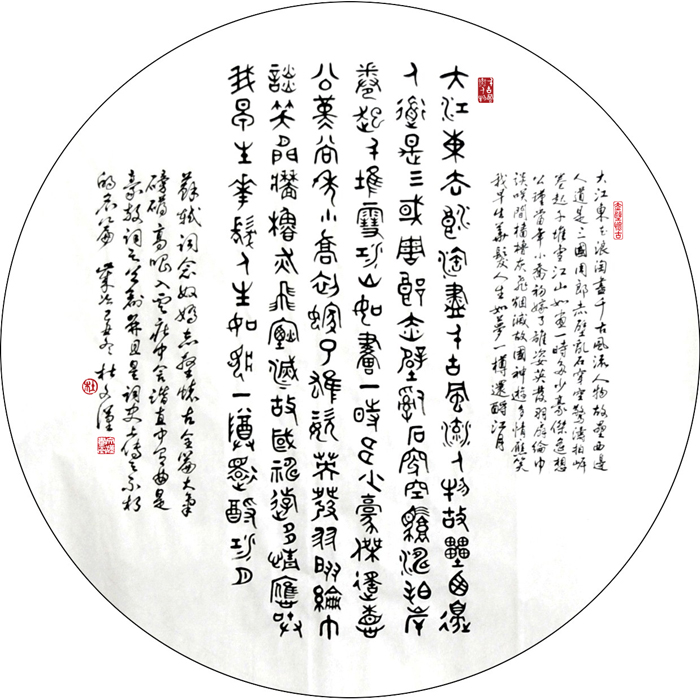 赤壁懷古
大江東去浪淘盡千古風流人物故壘西邊
人道是三國周郎赤壁亂石穿空驚濤拍岸
卷起千堆雪江山如畫一時多少豪傑遙想
公瑾當年小喬初嫁了雄姿英發羽扇綸巾
談笑間檣櫓灰飛煙滅故國神遊多情應笑
我早生華髮人生如夢一樽還酹江月
大江東去浪淘盡千古風流人物故壘西邊
人道是三國周郎赤壁亂石穿空驚濤拍岸
卷起千堆雪江山如畫一時多少豪傑遙想
公瑾當年小喬初嫁了雄姿英發羽扇綸巾
談笑間檣櫓灰飛煙滅故國神遊多情應笑
我早生華髮人生如夢一樽還酹江月
蘇軾詞念奴嬌赤壁懷古全篇大氣
磅礡高唱入雲中含直中寓曲是
豪放詞之先創並且是詞史上傳之不朽
的名篇 歲次冬 杜文
杜